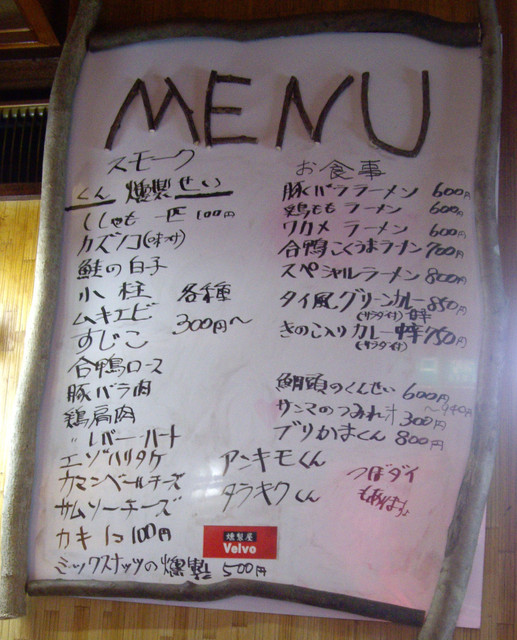 MENU
スモーク
くん 燻製 せい
ししゃも 一匹 100円
カズノコ(味付)
鮭の白子
小柱 各種
ムキエビ 300円〜
すじこ
合鴨ロース
豚バラ肉
鶏肩肉
〃 レバー・ハート
エゾハリタケ
カマンベールチーズ
サムソーチーズ
カキ 1コ 100円
ミックスナッツの燻製 500円
アンキモくん
タラキクくん
燻製屋
Velvo
お食事
豚バララーメン 600円
鶏もも ラーメン 600円
ワカメ ラーメン 600円
合鴨こくうまラーメン 700円
スペシャルラーメン 800円
タイ風グリーンカレー 850円
(サラダ付)
きのこ入りカレー 750円
(サラダ付)
鯛頭のくんせい 600円
〜
サンマのつみれ汁 300円
ブリかまくん 800円
つぼダイ
もあるよ